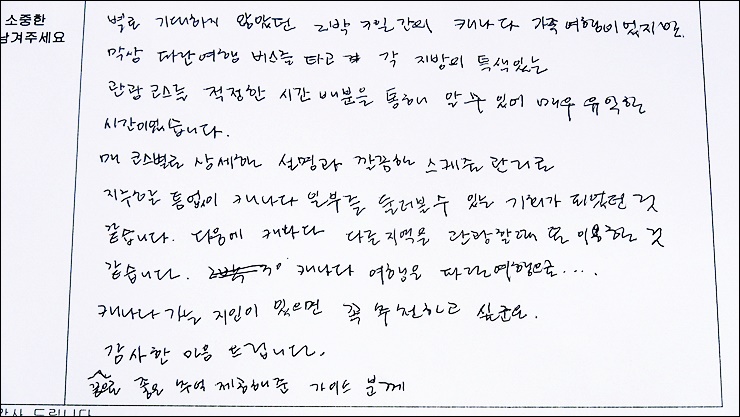 소중한
남겨주세요
별로 기대하지 않았던 2박 3일간의 캐나다 가족여행이었지만.
막상 파란여행 버스를 타고 각 지방의 특색있는
관광코스를 적정한 시간 배분을 통해 알 수 있어 매우 유익한
시간이었습니다.
매 코스별로 상세한 설명과 깔끔한 스케쥴 관리로
지루할 틈없이 캐나다 일부를 둘러볼 수 있는 기회가 되었던 것
같습니다. 다음에 캐나다 다른지역을 관광할때 또 이용할 것
같습니다. 캐나다 여행은 파란여행으로....
캐나다 가는 지인이 있으면 꼭 추천하고 싶군요.
감사한 마음 드립니다.
좋은 추억 제공해준 가이드 분께
감사 드립니다